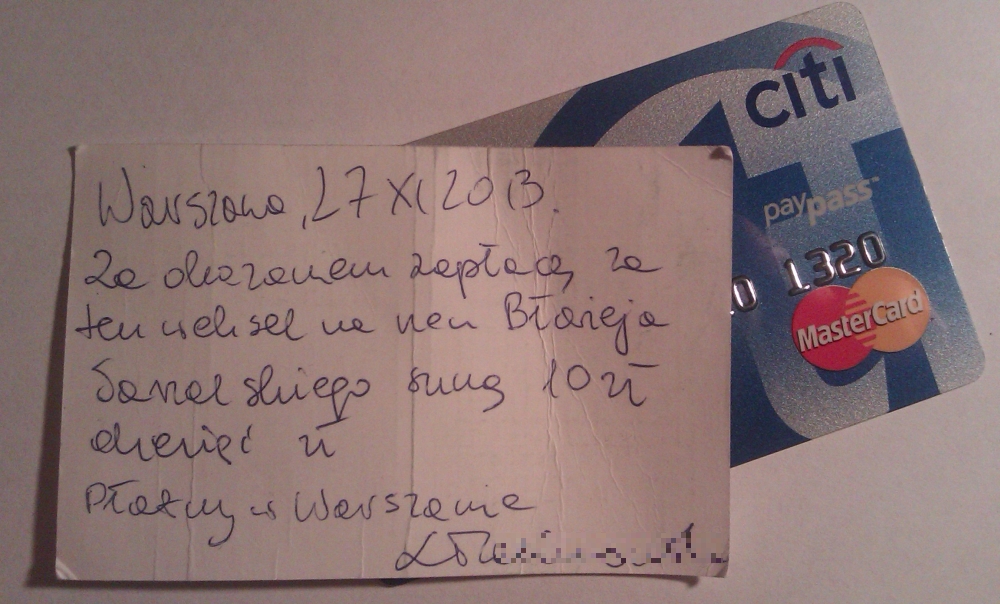 Warszawa, 27 XI 2013.
Za okazaniem zapłacę za
ten weksel na rzecz Błażeja
sumę 10 zł
dziesięć zł
Płatny w Warszawie
citi
paypass™
0 1320
MasterCard